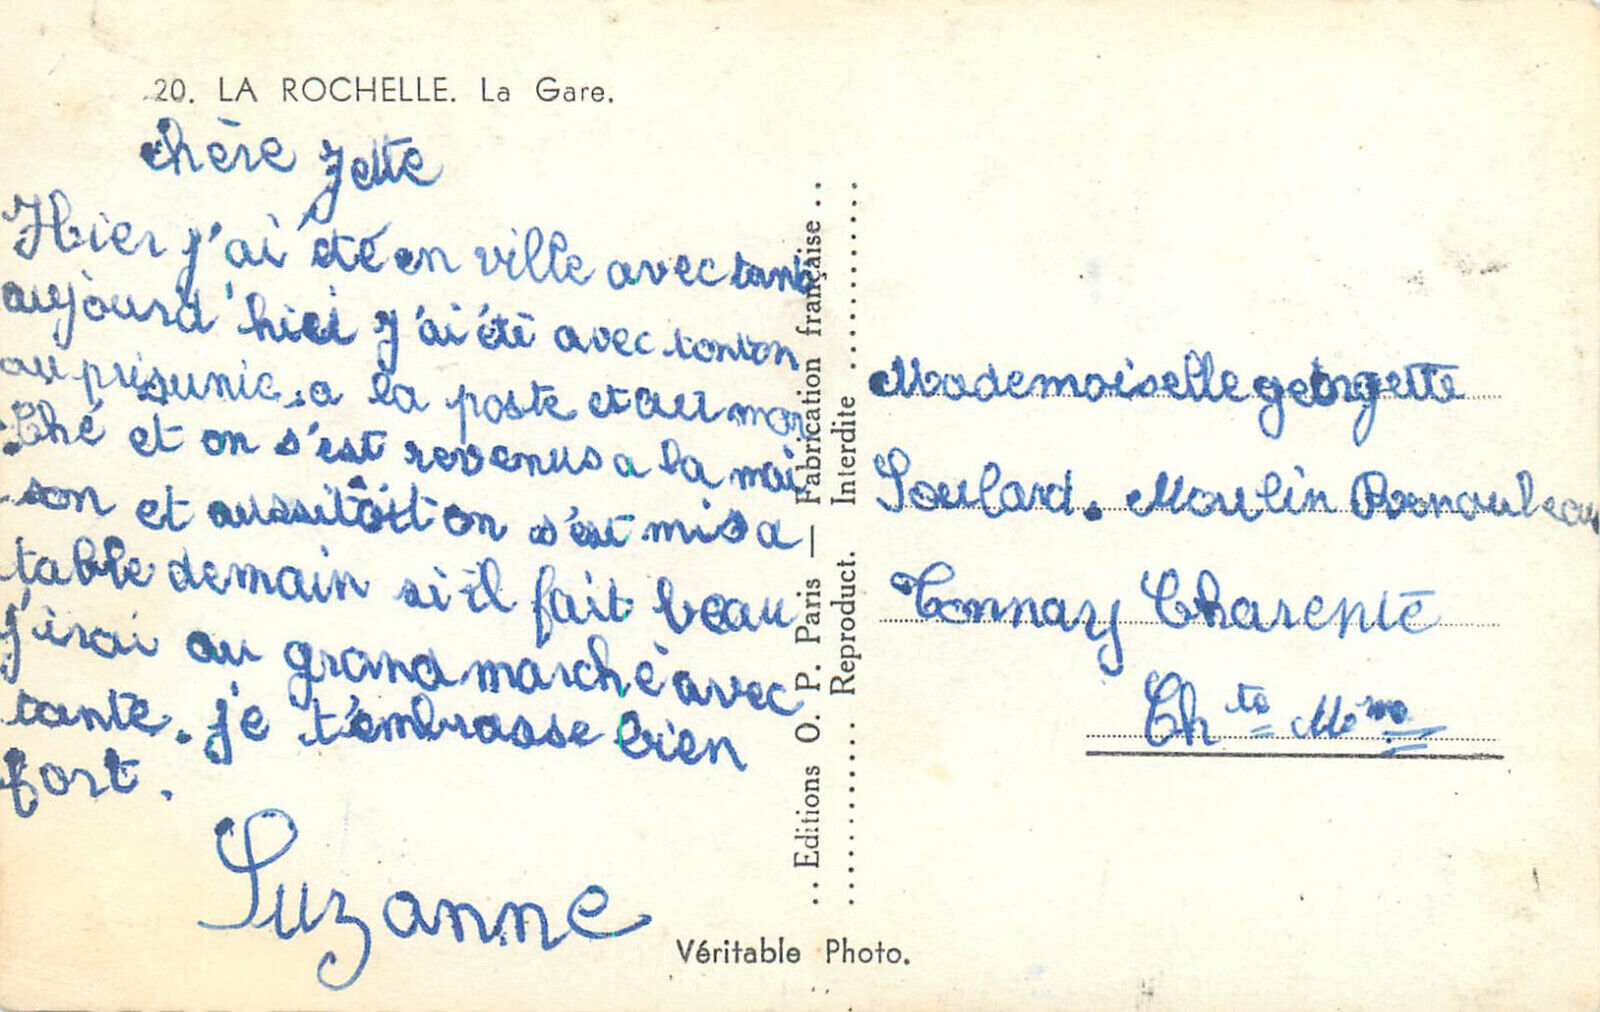 20. LA ROCHELLE. La Gare.
chère jette
Hier j'ai été en ville avec tante
aujourd'hiei j'ai été avec tonton
au prisunic. a la poste et au mar
ché et on s'est revenus a la mai
son et aussitôtt on s'est mis a
table demain si il fait beau
j'irai au grand marché avec
tante. je t'embrasse bien
fort.
Suzanne
.. Editions O. P. Paris — Fabrication française ..
Reproduct. Interdite
Véritable Photo.
Mademoiselle georgette
Soulard. Moulin Renouleau
Tonnay Charente
Chte Mme